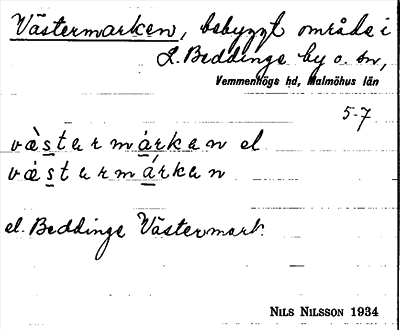 Västermarken, bebyggt område i
L. Beddinge by o. sn,
Vemmenhögs hd, Malmöhus län
5-7
vä̀starmárkan el
vä́starmárkan
el. Beddinge Västermark.
NILS NILSSON 1934